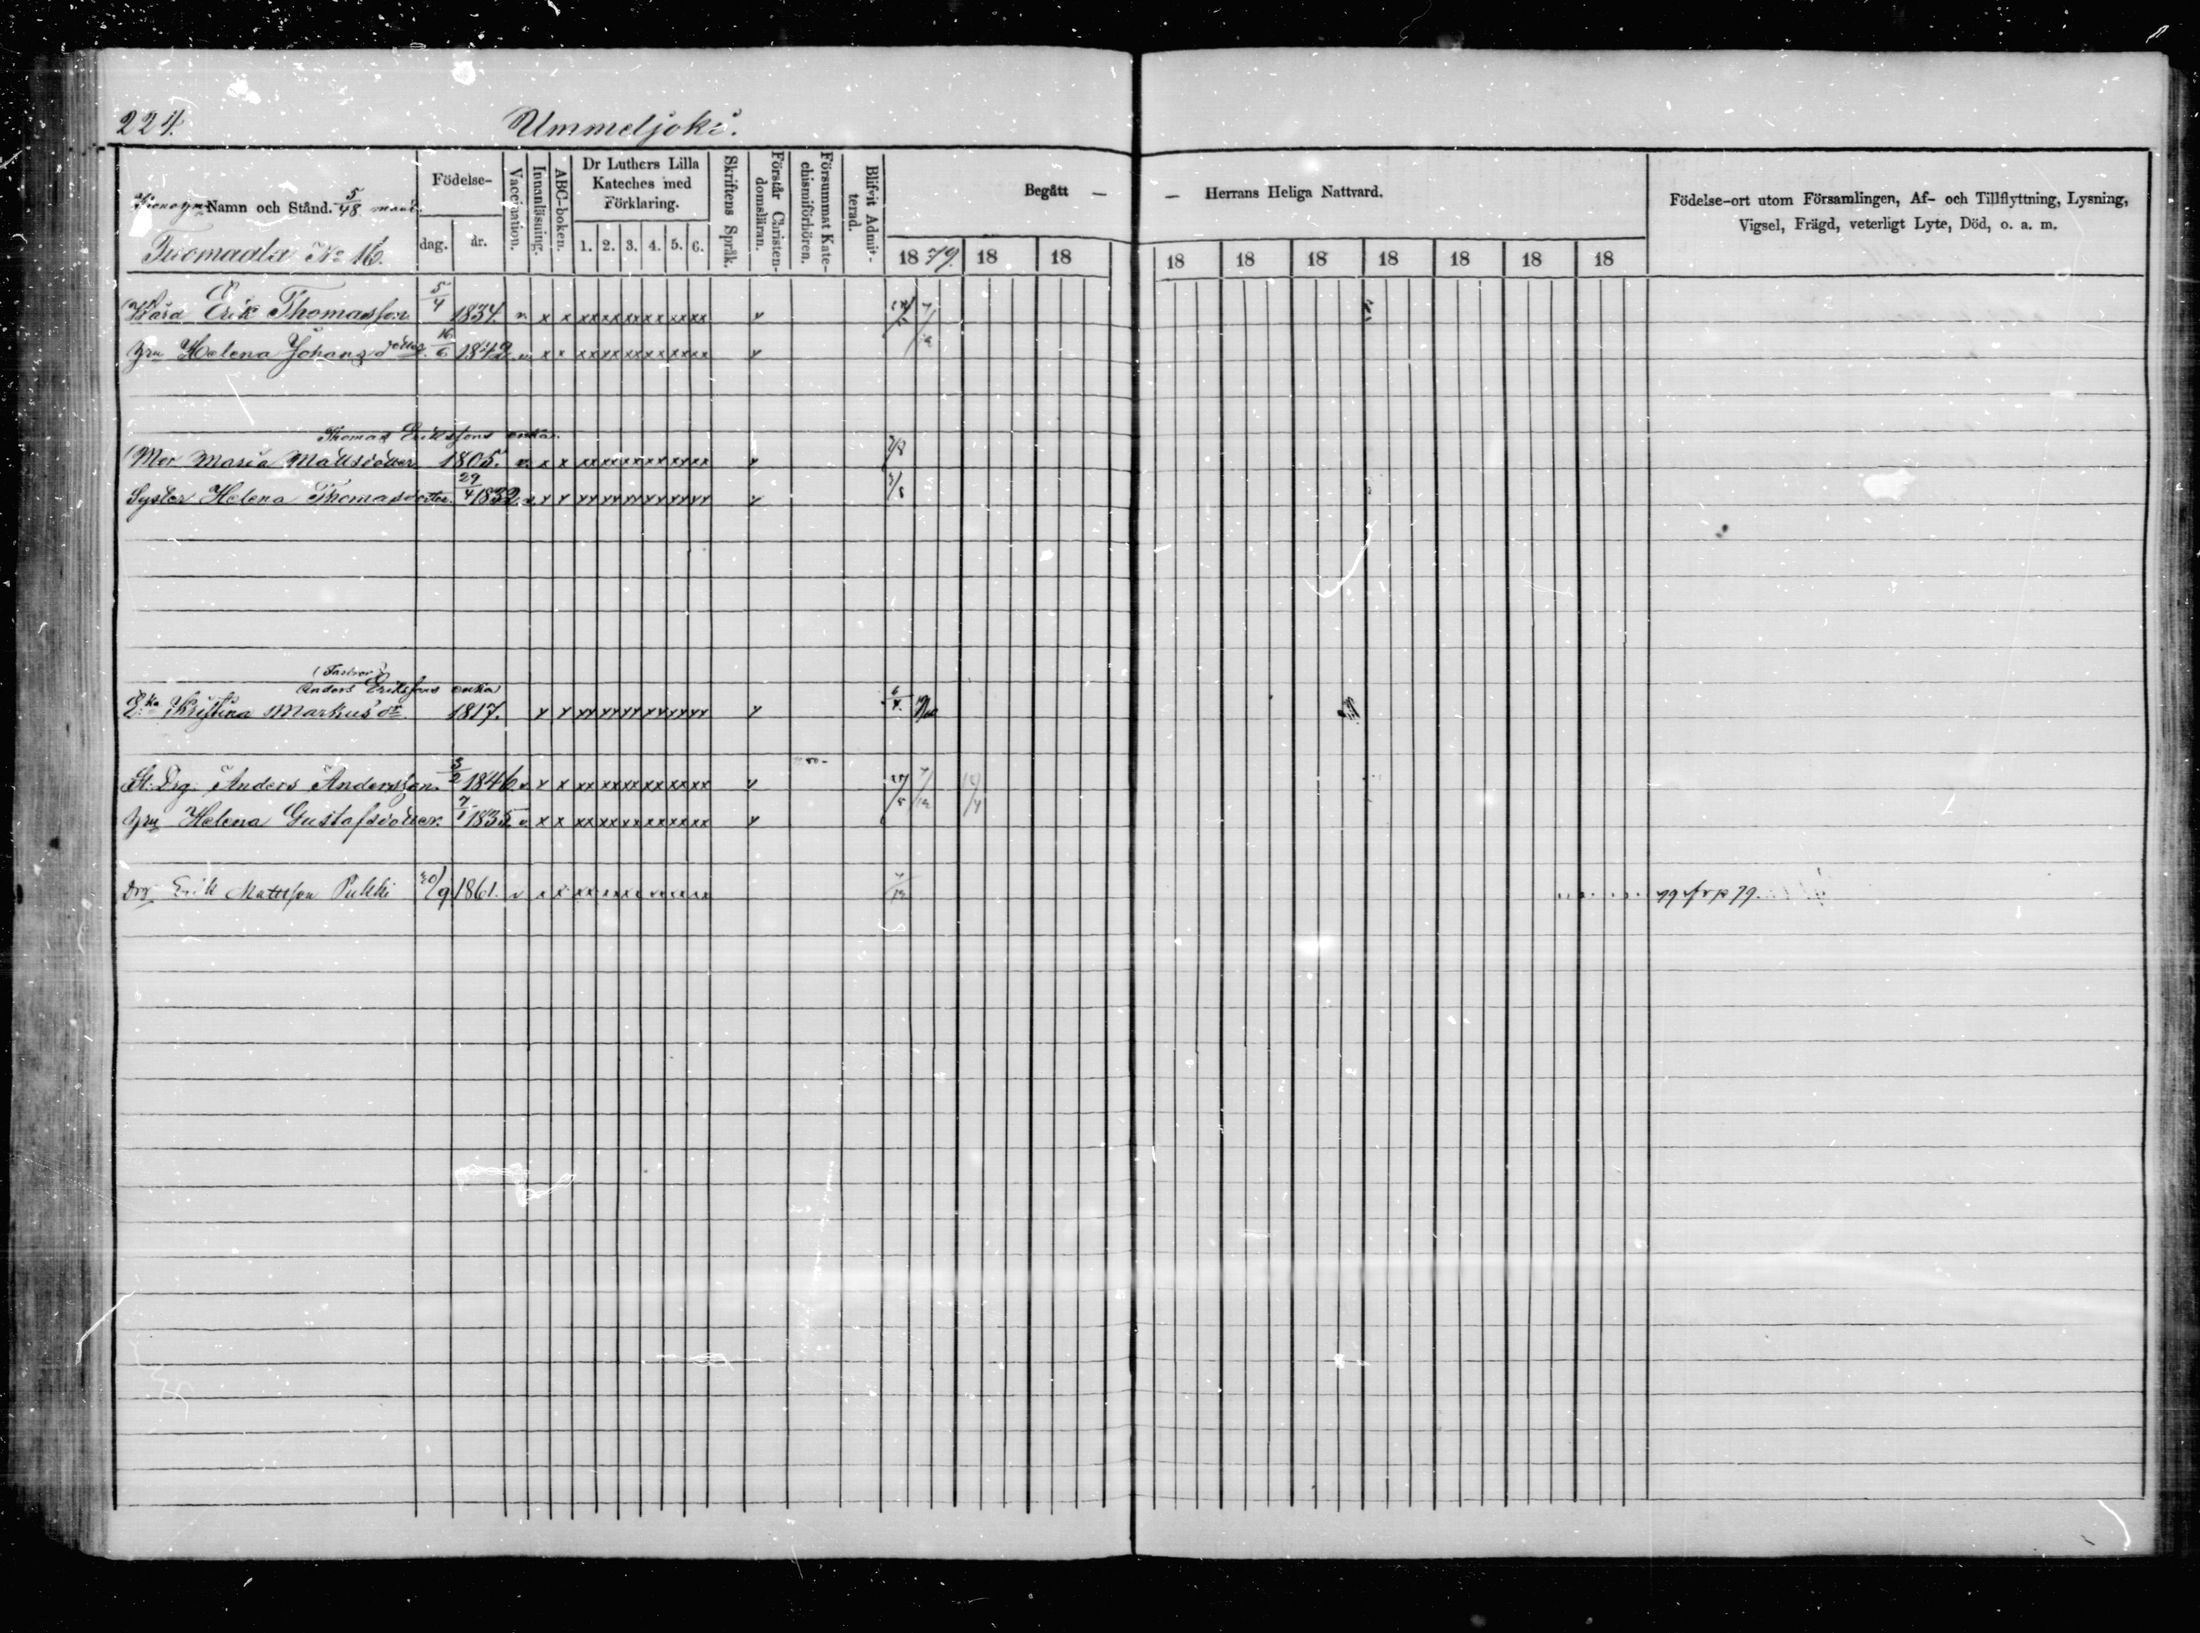 224.
Ummeljoki.
Namn och Stånd. 5/48 mant.
Tuomaala No 16.
Födelse-
dag. år.
Vaccination.
Innanläsning.
ABC-boken.
Dr Luthers Lilla Kateches med Förklaring.
1. 2. 3. 4. 5. 6.
Skriftens Språk.
Förstår Christendomsläran.
Försummat Katechismiförhören.
Blifvit Admitterad.
Begått — — Herrans Heliga Nattvard.
18 79. 18 18 18 18 18 18 18 18 18
Födelse-ort utom Församlingen, Af- och Tillflyttning, Lysning,
Vigsel, Frägd, veterligt Lyte, Död, o. a. m.
Erik Thomasson 5/4 1834. v x x xx xx xx xx xx xx v
Hru Helena Johansdotter 16/6 1842 v x x xx xx xx xx xx xx v
Thomas Erikssons enka.
Mor Maria Mattsdotter 1805. v x x xx xx xx xx xx xx v
Syster Helena Thomasdotter. 29/4 1832 v x x xx xx xx xx xx xx v
Anders Erikssons enka
E:ka Kristina Markusdr 1817. x x xx xx xx xx xx xx v
Drg. Anders Andersson 3/2 1846 v x x xx xx xx xx xx xx v
Hru Helena Gustafsdotter. 7/1 1835. v x x xx xx xx xx xx xx v
Drg Erik Mattsson Pukki 30/9 1861. v x x xx xx xx xx xx xx